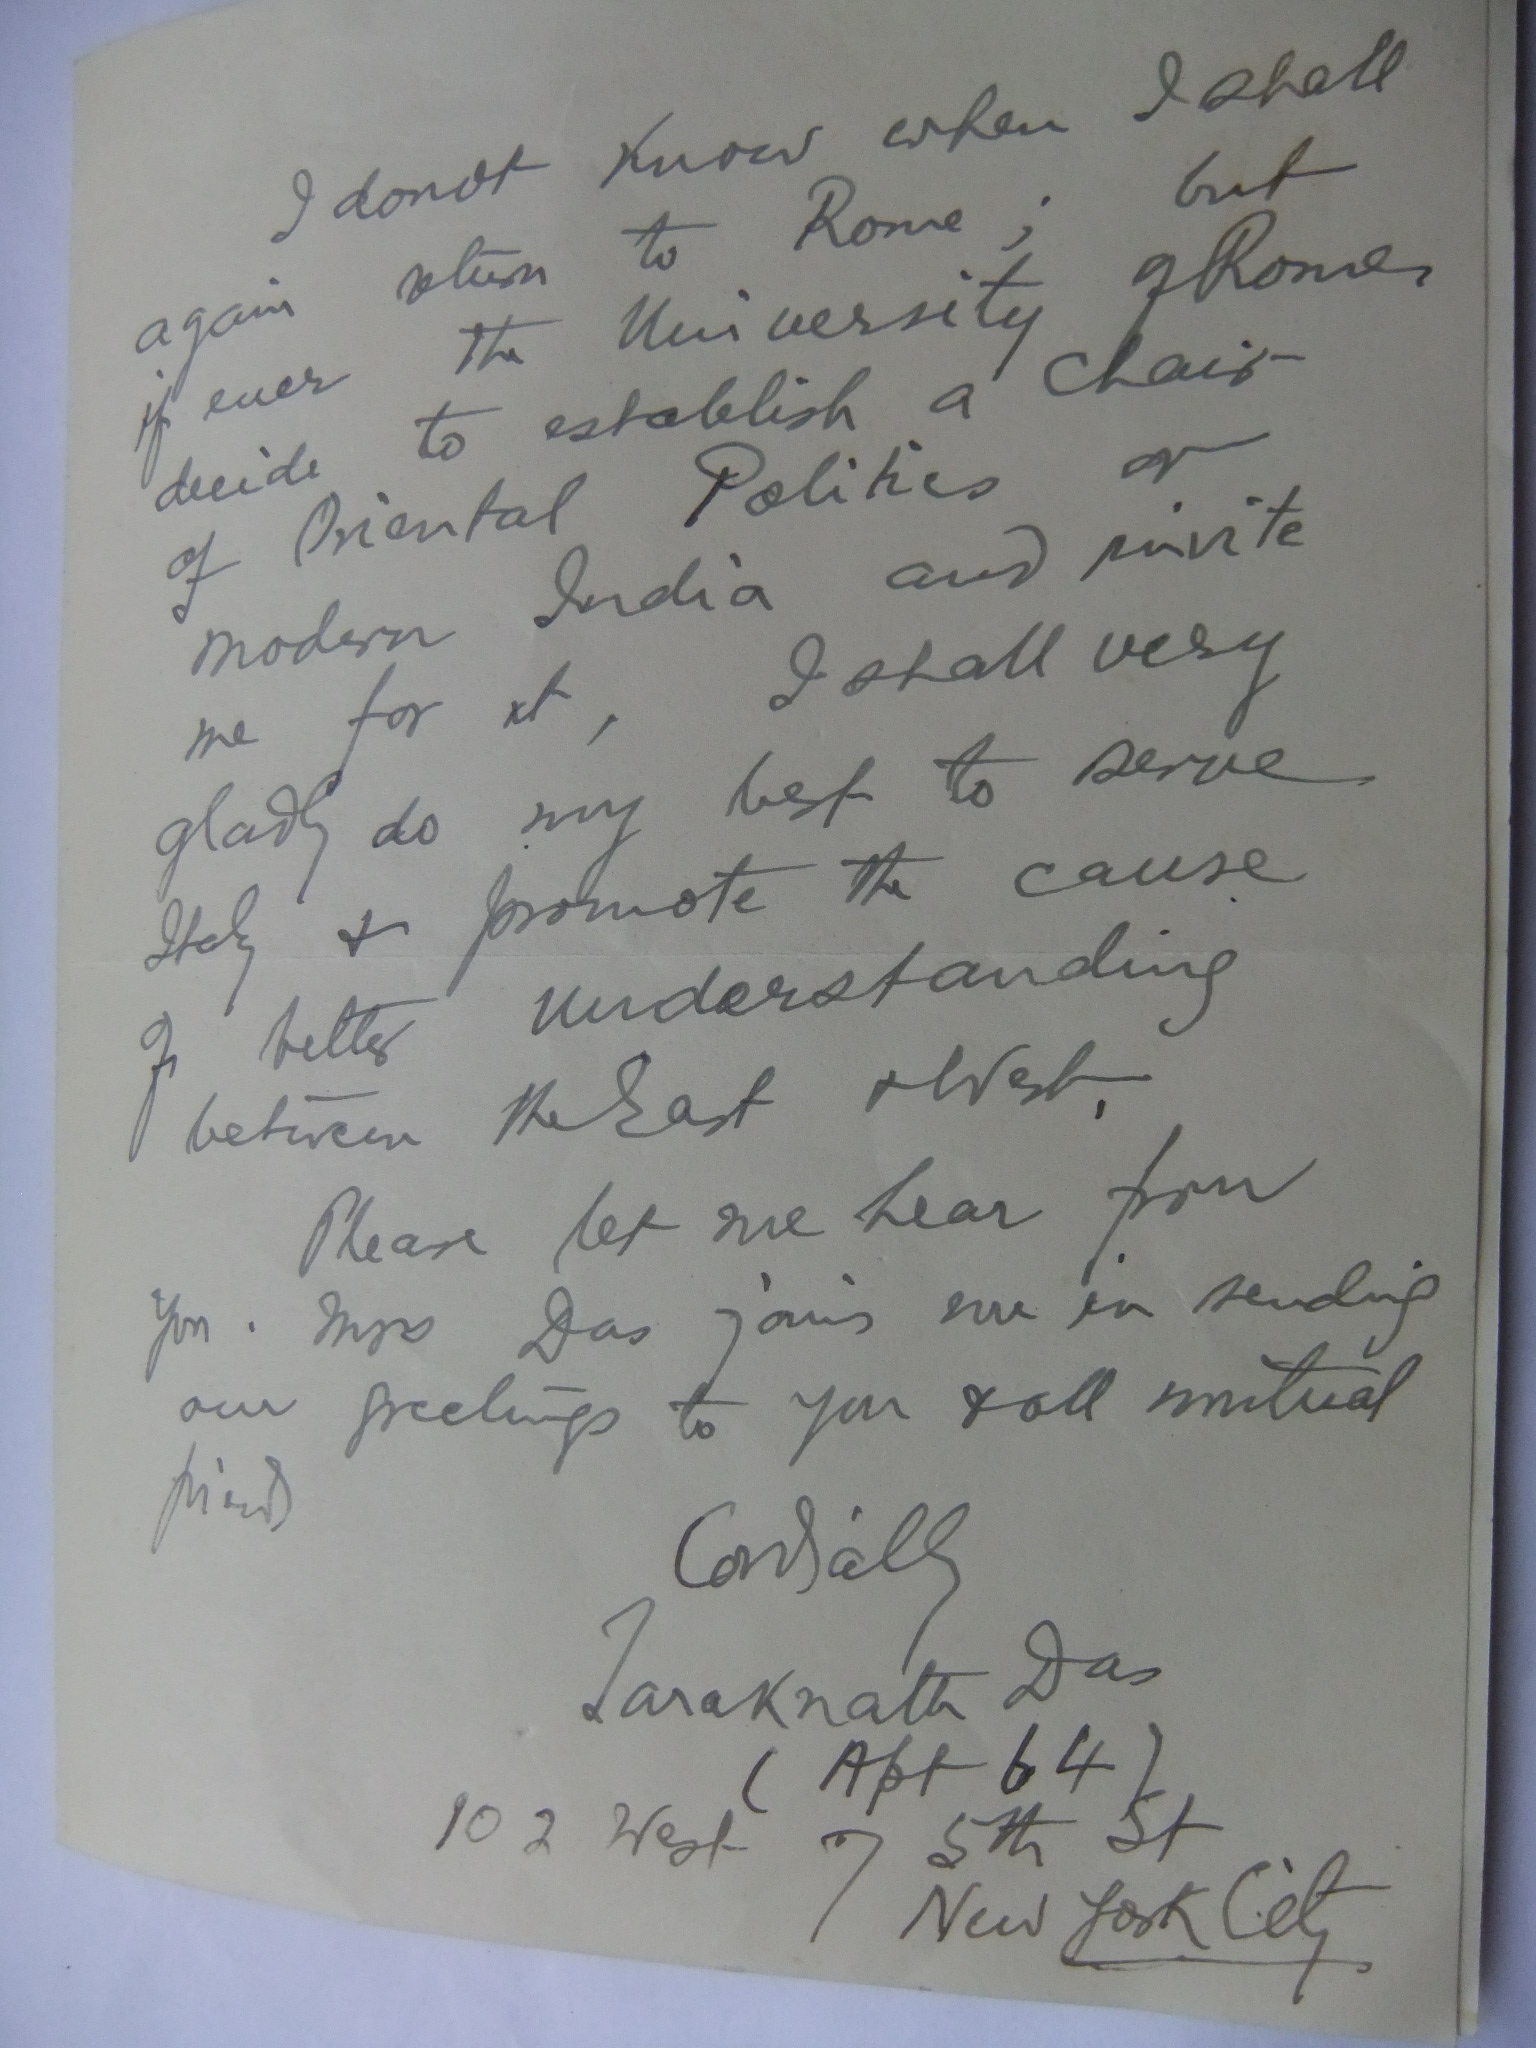 I donot know when I shall
again return to Rome; but
if ever the University of Rome,
decide to establish a chair
of Oriental Politics or
modern India and invite
me for it, I shall very
gladly do my best to serve
Italy & promote the cause
of better understanding
between the East & West.
Please let me hear from
you. Mrs Das joins me in sending
our greetings to you & all mutual
friends
Cordially
Taraknath Das
(Apt 64)
102 West 75th St
New York City